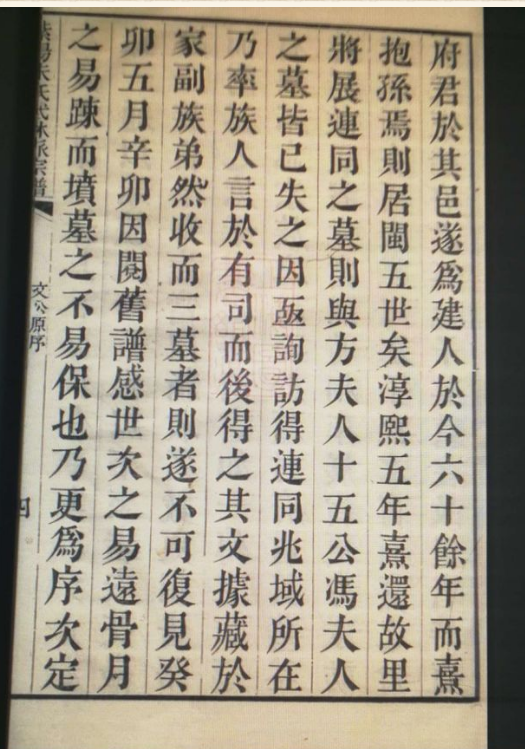 府君於其邑遂爲建人於今六十餘年而熹
抱孫焉則居閩五世矣淳熙五年熹還故里
將展連同之墓則與方夫人十五公馮夫人
之墓皆已失之因亟詢訪得連同兆域所在
乃率族人言於有司而後得之其文據藏於
家副族弟然收而三墓者則遂不可復見癸
卯五月辛卯因閱舊譜感世次之易遠骨月
之易踈而墳墓之不易保也乃更爲序次定
派宗譜
文公原序
四